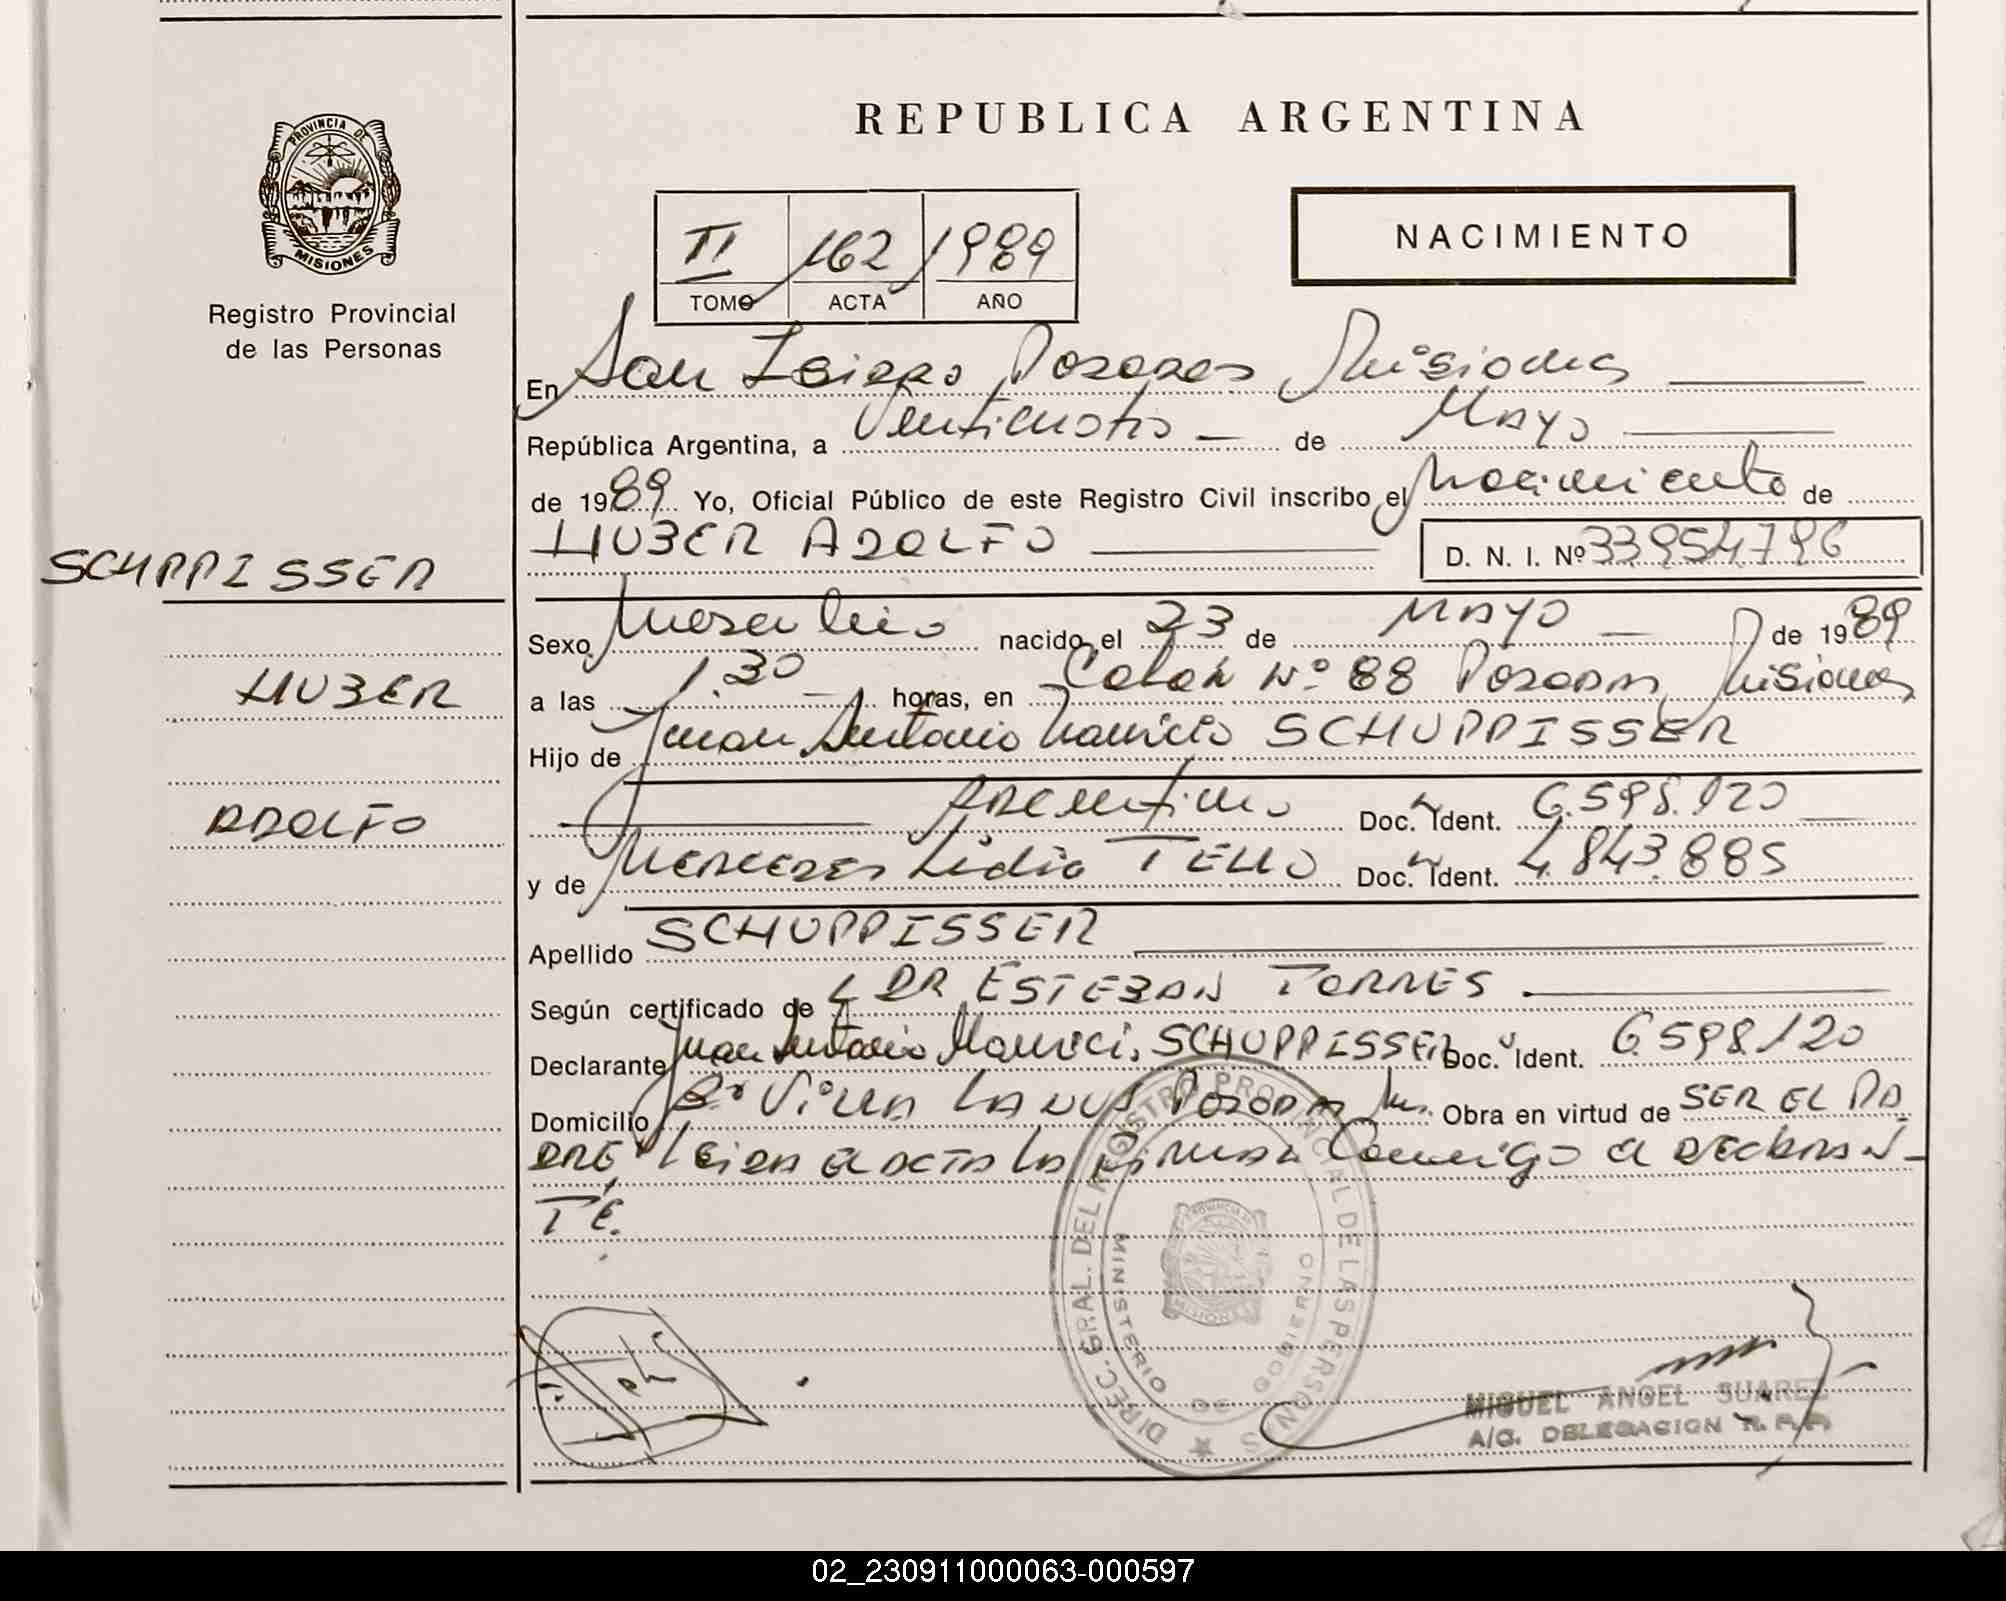 PROVINCIA DE
MISIONES
Registro Provincial
de las Personas
SCHPPISSER
HUBER
ADOLFO
REPUBLICA ARGENTINA
II 162 1989
TOMO ACTA AÑO
NACIMIENTO
En San Isidro Posadas Misiones
República Argentina, a Venticuatro de Mayo
de 1989 Yo, Oficial Público de este Registro Civil inscribo el Nacimiento de
HUBER ADOLFO D. N. I. Nº 33954796
Sexo Masculino nacido el 23 de MAYO de 1989
a las 1.30 horas, en Colon Nº 88 Posadas Misiones
Hijo de Juan Antonio Mauricio SCHUPPISSER
Argentino Doc. Ident. 6.598.120
y de Mercedes Lidia TELLO Doc. Ident. 4.843.885
Apellido SCHUPPISSER
Según certificado de DR ESTEBAN TORRES
Declarante Juan Antonio Maurici. SCHUPPISSER Doc. Ident. 6.598.120
Domicilio Bº Villa LANUS Posadas Mns. Obra en virtud de SER EL PA
DRE Leida el acta la firman Conmigo el DECLARAN-
TE.
DIREC. GRAL. DEL REGISTRO PROVINCIAL DE LAS PERSONAS
MINISTERIO DE GOBIERNO
PROVINCIA DE
MISIONES
MIGUEL ANGEL SUAREZ
A/C. DELEGACION R. P. P.
02_230911000063-000597